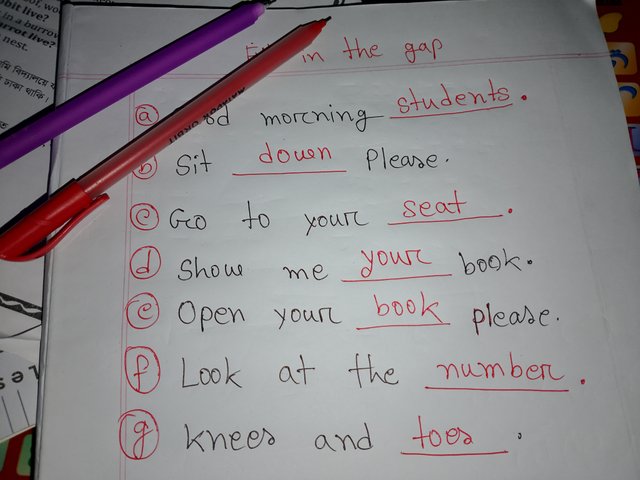 in the gap
ⓐ morcning students.
ⓑ Sit down Please.
ⓒ Go to your seat.
ⓓ Show me your book.
ⓔ Open your book please.
ⓕ Look at the number.
ⓖ knees and toes.